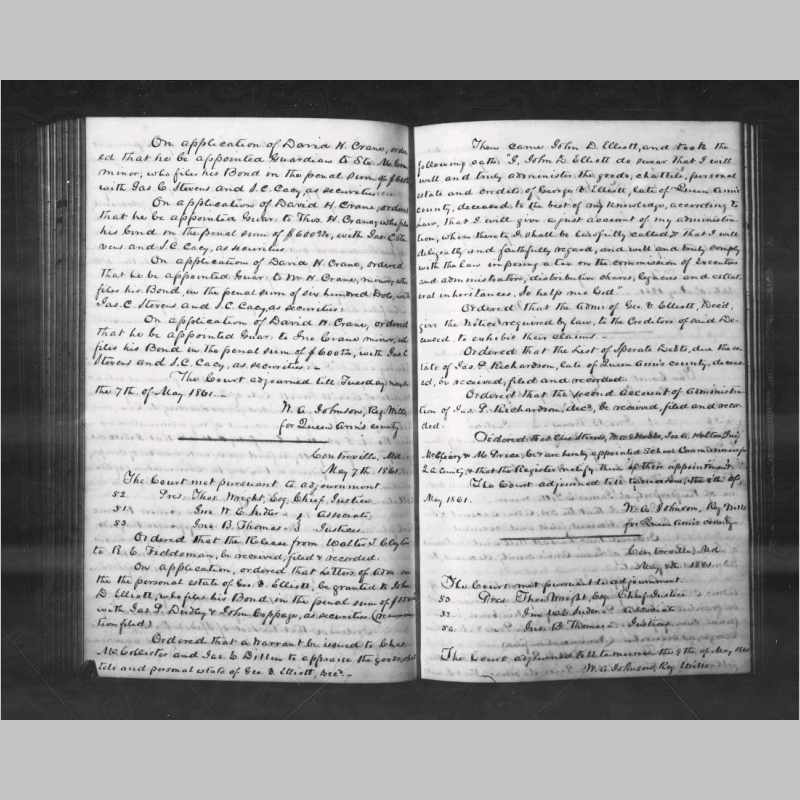 On application of David H. Crane, order
ed that he be appointed Guardian to Ste. Mc.
minor, who files his Bond in the penal sum of $600
with Jas. C. Stevens and J. C. Cacy, as securities
On application of David H. Crane, ordered
that he be appointed Guar. to Thos. H. Crane, who files
his bond in the penal sum of $600 , with Jas. C. Ste
vens and J. C. Cacy, as securities.
On application of David H. Crane, ordered
that he be appointed Guar. to Wm H. Crane, minor, who
files his Bond in the penal sum of six hundred Dols, with
Jas. C. Stevens and J. C. Cacy, as securities.
On application of David H. Crane, ordered
that he be appointed Guar. to Crane minor, who
files his Bond in the penal sum of $600 , with Jas. C
Stevens and J. C. Cacy, as securities.
The Court adjourned till Tuesday next
the 7th. of May 1861.
W. A. Johnson, Reg. Wills
for Queen Ann's county
Centreville, Md.
May 7th 1861.
The Court met pursuant to adjournment
52. Pres. Thos. Wright, Esq. Chief Justice
51. Jno. W. C. Associate
53. Jno. B. Thomas Justices
Ordered that the Release from Walter J. Clayton
to R. C. Fiddeman, be received, filed & recorded.
On application, ordered that Letters of Adm. on
the the personal estate of Geo. V. Elliott, be granted to John
D. Elliott, who files his Bond in the penal sum of $
with Jas. P. Dudley & John Coppage, as securities
tion filed)
Ordered that a warrant be issued to Chas.
McCollister and Jas. C. to appraise the goods, chat
tels and personal estate of Geo V. Elliott, dec.
Then came John D. Elliott, and took the
following oath: "I, John D. Elliott do swear that I will
well and truly administer the goods, chattels, personal
estate and credits of George V. Elliott, late of Queen Ann's
county, deceased, to the best of my knowledge, according to
law, that I will give a just account of my administra
tion, when thereto I shall be lawfully called & that I will
diligently and faithfully regard, and well and truly comply
with the law imposing a tax on the commission of Executors
and administrators, distributive shares, legacies and collat
eral inheritances. So help me God."
Ordered that the Admr. of Geo. V. Elliott, Dec'd,
give the Notice required by law, to the Creditors of said De
ceased to exhibit their claims.
Ordered that the List of Sperate Debts, due the es
tate of Jas. P. Richardson, late of Queen Ann's county, deceas
ed, be received, filed and recorded.
Ordered that the second Account of Administra
tion of Jas. P. Richardson, dec., be received, filed and recor
ded.
Ordered that Chas.
& are hereby appointed School Commissioners for
2 A County & that the Register notify them of their appointment.
The Court adjourned till tomorrow, the 8th of
May 1861.
W. A. Johnson, Reg. Wills
for Queen Ann's county
Centreville, Md.
May 8th. 1861.
The Court met pursuant to adjournment
53. Pres. Thos. Wright, Esq. Chief Justice
52. Jno. W. C. Associate
54. Jno. B. Thomas Justices
The Court adjourned till tomorrow the 9th. of May 1861
W. A. Johnson, Reg. Wills